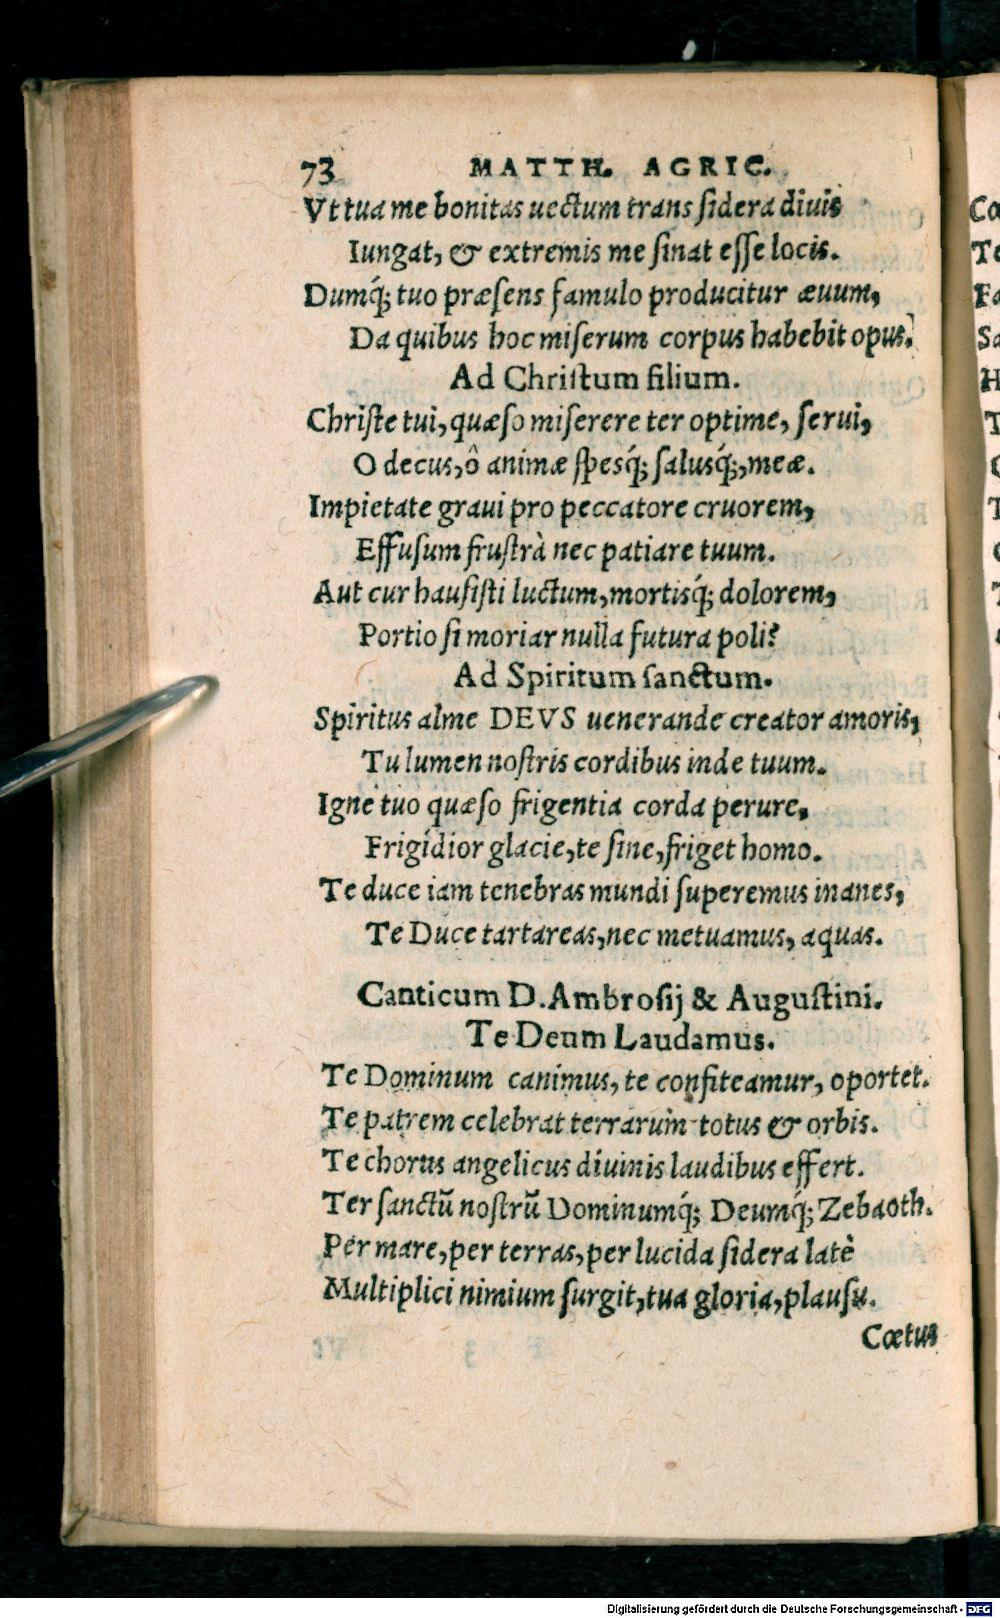 73 MATTH. AGRIC.
Vt tua me bonitas uectum trans sidera diuis
Iungat, & extremis me sinat esse locis.
Dumq́; tuo præsens famulo producitur æuum,
Da quibus hoc miserum corpus habebit opus.
Ad Christum filium.
Christe tui, quæso miserere ter optime, serui,
O decus, ô animæ spesq́; salusq́;, meæ.
Impietate graui pro peccatore cruorem,
Effusum frustrà nec patiare tuum.
Aut cur hausisti luctum, mortisq́; dolorem,
Portio si moriar nulla futura poli?
Ad Spiritum sanctum.
Spiritus alme DEVS uenerande creator amoris,
Tu lumen nostris cordibus inde tuum.
Igne tuo quæso frigentia corda perure,
Frigidior glacie, te sine, friget homo.
Te duce iam tenebras mundi superemus inanes,
Te Duce tartareas, nec metuamus, aquas.
Canticum D. Ambrosij & Augustini.
Te Deum Laudamus.
Te Dominum canimus, te confiteamur, oportet.
Te patrem celebrat terrarum totus & orbis.
Te chorus angelicus diuinis laudibus effert.
Ter sanctū nostrū Dominumq́; Deumq́; Zebaoth.
Per mare, per terras, per lucida sidera latè
Multiplici nimium surgit, tua gloria, plausu.
Cœtus
Digitalisierung gefördert durch die Deutsche Forschungsgemeinschaft - DFG